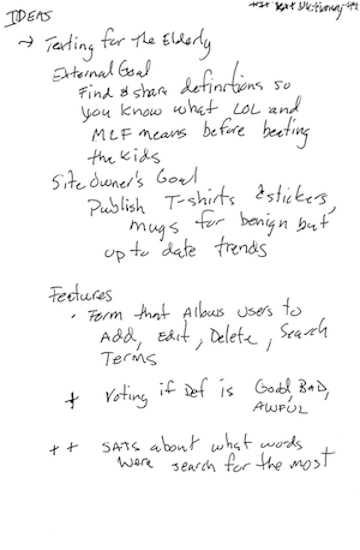 IDEAS
→ Texting for The Elderly
External Goal
Find & share definitions so
you know what LOL and
MLF means before beeting
the kids
Site Owner's Goal
Publish T-shirts & stickers,
mugs for benign but
up to date trends
Features
· Form that Allows users to
Add, Edit, Delete, Search
Terms
+ Voting if Def is Good, BAD,
AWFUL
+ + SATS about what words
were search for the most